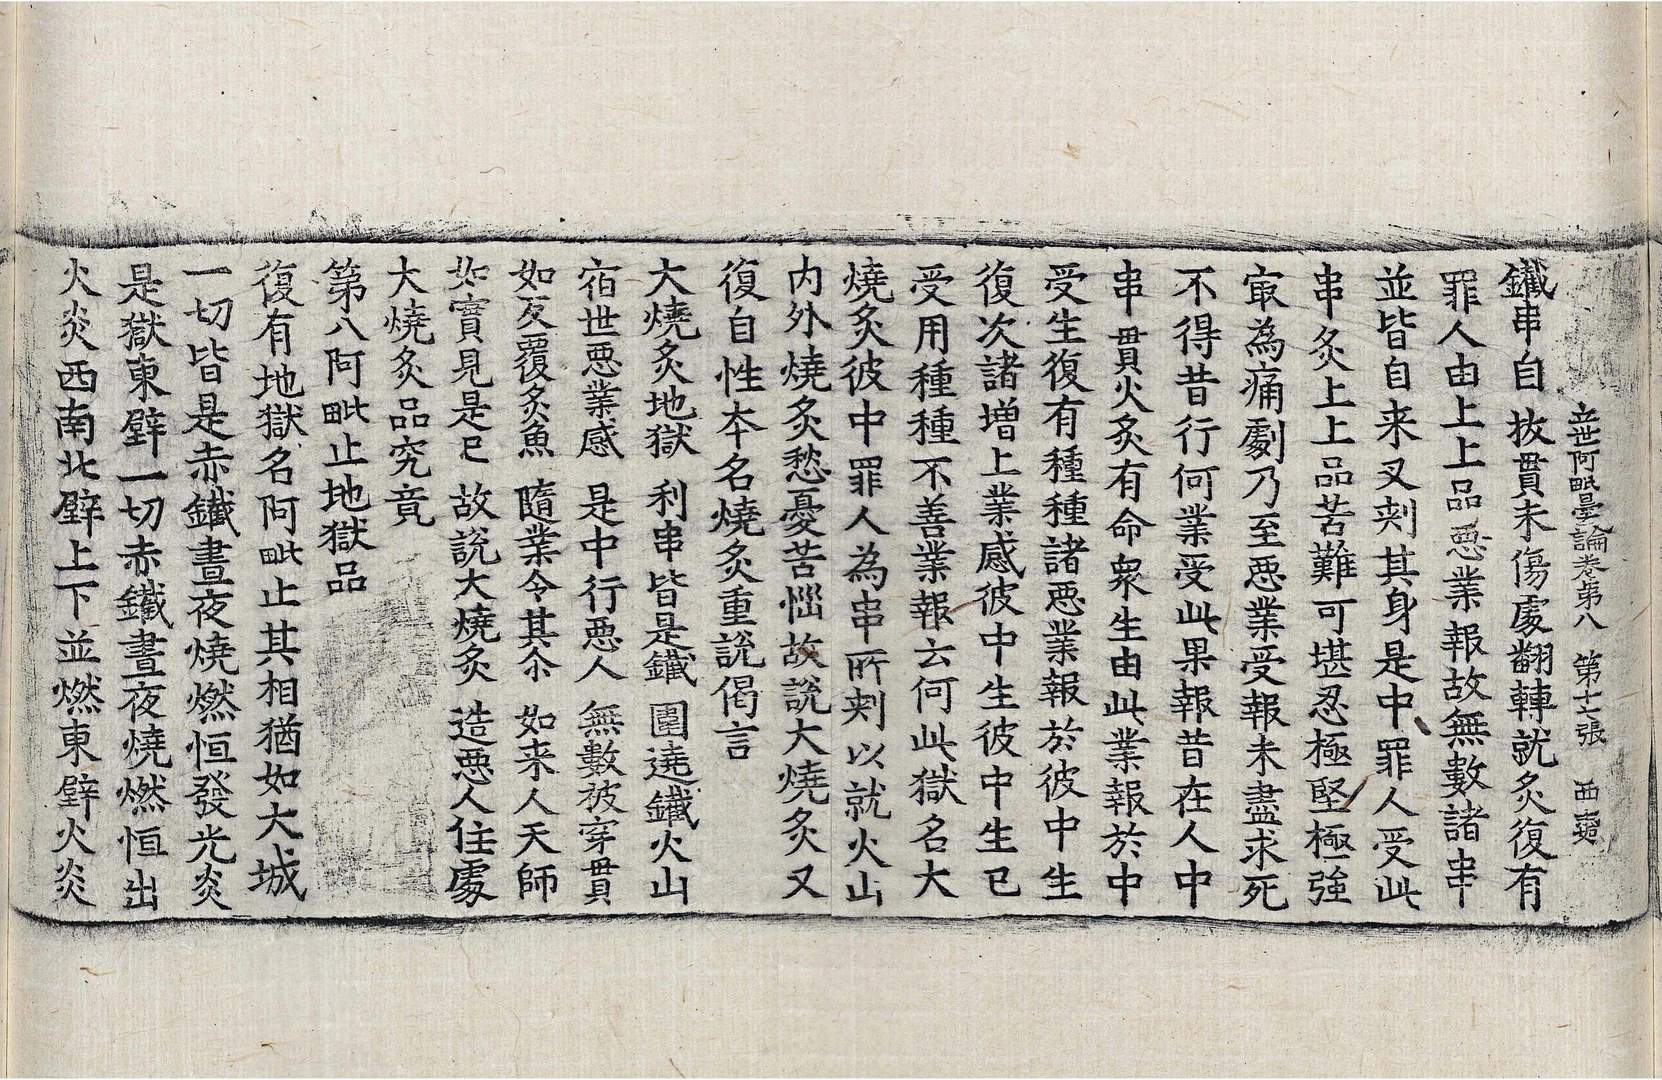 立世阿毗曇論卷第八 第十七張
鐵串自拔貫未傷處翻轉就炙復有
罪人由上上品惡業報故無數諸串
並皆自来叉刾其身是中罪人受此
串炙上上品苦難可堪忍極堅極強
㝡為痛劇乃至惡業受報未盡求死
不得昔行何業受此果報昔在人中
串貫火炙有命衆生由此業報於中
受生復有種種諸惡業報於彼中生
復次諸增上業感彼中生彼中生已
受用種種不善業報云何此獄名大
燒炙彼中罪人為串所刾以就火山
内外燒炙愁憂苦惱故說大燒炙又
復自性夲名燒炙重說偈言
大燒炙地獄 利串皆是鐵 圍遶鐵火山
宿世惡業感 是中行惡人 無數被穿貫
如反覆炙魚 隨業令其尒 如来人天師
如實見是已 故說大燒炙 造惡人住處
大燒炙品究竟
第八阿毗止地獄品
復有地獄名阿毗止其相猶如大城
一切皆是赤鐵晝夜燒燃恒發光炎
是獄東壁一切赤鐵晝夜燒燃恒出
火炎西南北壁上下並燃東壁火炎